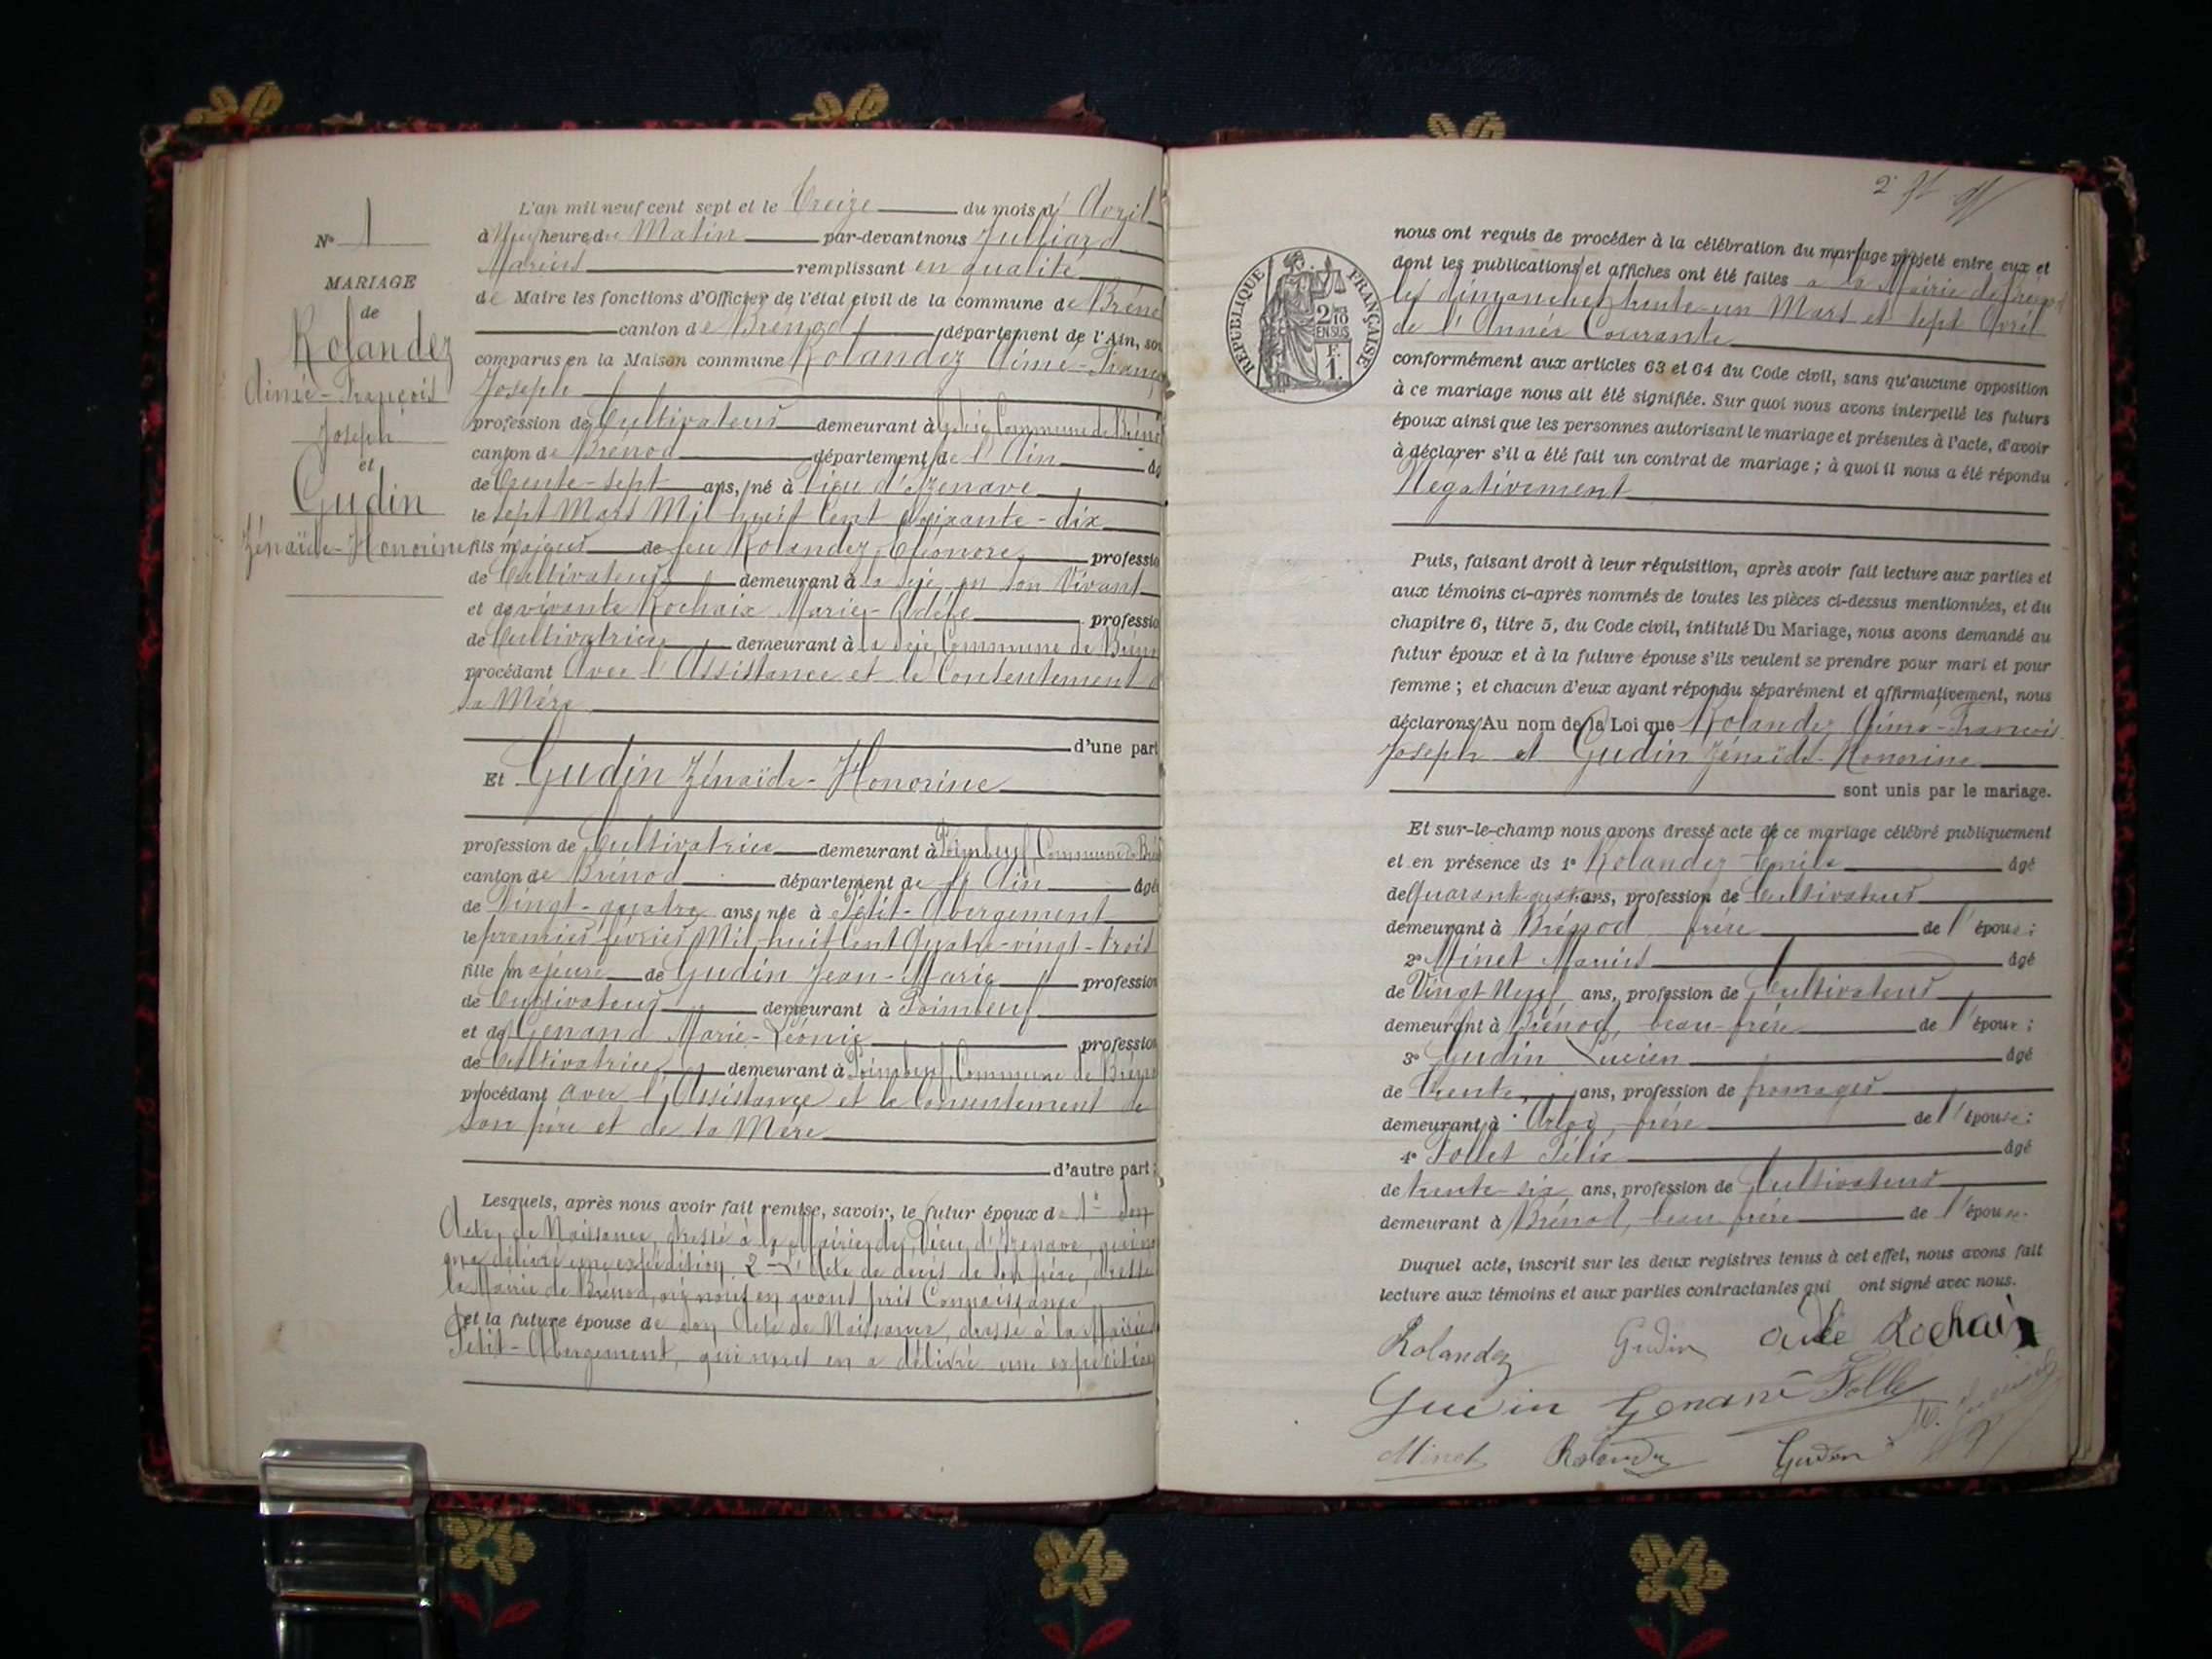 N° 1
MARIAGE
de
Rolandez
Aimé-François
Joseph
et
Gudin
Zénaïde-Honorine
L'an mil neuf cent sept et le Treize du mois d'Avril
à Neuf heures du Matin par-devant nous Julliard
Marius remplissant en qualité
de Maire les fonctions d'Officier de l'état civil de la commune de Bréno
canton de Brénod département de l'Ain, son
comparus en la Maison commune Rolandez Aimé-Franço
Joseph
profession de Cultivateur demeurant à la Scie, Commune de Bréno
canton de Brénod département de l'Ain âg
de trente-sept ans, né à Vieu d'Izenave
le sept Mars Mil huit Cent soixante-dix
fils majeur de feu Rolandez, Eléonore, professio
de Cultivateur demeurant à la Scie, en son Vivant
et de vivante Rochaix Marie-Adèle professio
de Cultivatrice demeurant à la Scie, Commune de Bréno
procédant Avec l'Assistance et le Consentement d
sa Mère
d'une part
Et Gudin Zénaïde-Honorine
profession de Cultivatrice demeurant à Poimbeuf, Commune de Bré
canton de Brénod département de l'Ain âgé
de Vingt-quatre ans, née à Petit-Abergement
le premier février Mil-huit Cent Quatre-vingt-trois
fille majeure de Gudin Jean-Marie profession
de Cultivateur demeurant à Poimbeuf
et de Genand Marie-Léonie profession
de Cultivatrice demeurant à Poimbeuf, Commune de Bréno
procédant avec l'Assistance et le Consentement de
son père et de sa Mère
d'autre part;
Lesquels, après nous avoir fait remise, savoir, le futur époux de 1° son
Acte de Naissance, dressé à la Mairie de Vieu d'Izenave, qui n
en a délivré une expédition, 2° L'Acte de décès de son père, dressé
la Mairie de Brénod, où nous en avons pris Connaissance
et la future épouse de son Acte de Naissance, dressé à la Mairie
Petit-Abergement, qui nous en a délivré une expédition
2°
RÉPUBLIQUE FRANÇAISE
2/10
EN SUS
F.
1.
nous ont requis de procéder à la célébration du mariage projeté entre eux et
dont les publications et affiches ont été faites à la Mairie de Bréno
les dimanches trente-un Mars et sept Avril
de l'Année Courante
conformément aux articles 63 et 64 du Code civil, sans qu'aucune opposition
à ce mariage nous ait été signifiée. Sur quoi nous avons interpellé les futurs
époux ainsi que les personnes autorisant le mariage et présentes à l'acte, d'avoir
à déclarer s'il a été fait un contrat de mariage; à quoi il nous a été répondu
Négativement
Puis, faisant droit à leur réquisition, après avoir fait lecture aux parties et
aux témoins ci-après nommés de toutes les pièces ci-dessus mentionnées, et du
chapitre 6, titre 5, du Code civil, intitulé Du Mariage, nous avons demandé au
futur époux et à la future épouse s'ils veulent se prendre pour mari et pour
femme; et chacun d'eux ayant répondu séparément et affirmativement, nous
déclarons Au nom de la Loi que Rolandez Aimé-François
Joseph et Gudin Zénaïde-Honorine
sont unis par le mariage.
Et sur-le-champ nous avons dressé acte de ce mariage célébré publiquement
et en présence de 1° Rolandez Emile âgé
de Quarante ans, profession de Cultivateur
demeurant à Brénod frère de l'époux;
2° Minet Marius âgé
de Vingt Neuf ans, profession de Cultivateur
demeurant à Brénod, beau-frère de l'époux;
3° Gudin Lucien âgé
de trente ans, profession de fromager
demeurant à Arlod, frère de l'épouse;
4° Follet Félix âgé
de trente-six ans, profession de Cultivateur
demeurant à Brénod, beau-frère de l'épouse.
Duquel acte, inscrit sur les deux registres tenus à cet effet, nous avons fait
lecture aux témoins et aux parties contractantes qui ont signé avec nous.
Rolandez Gudin Adèle Rochaix
Gudin Genand Follet
Minet Rolandez Gudin